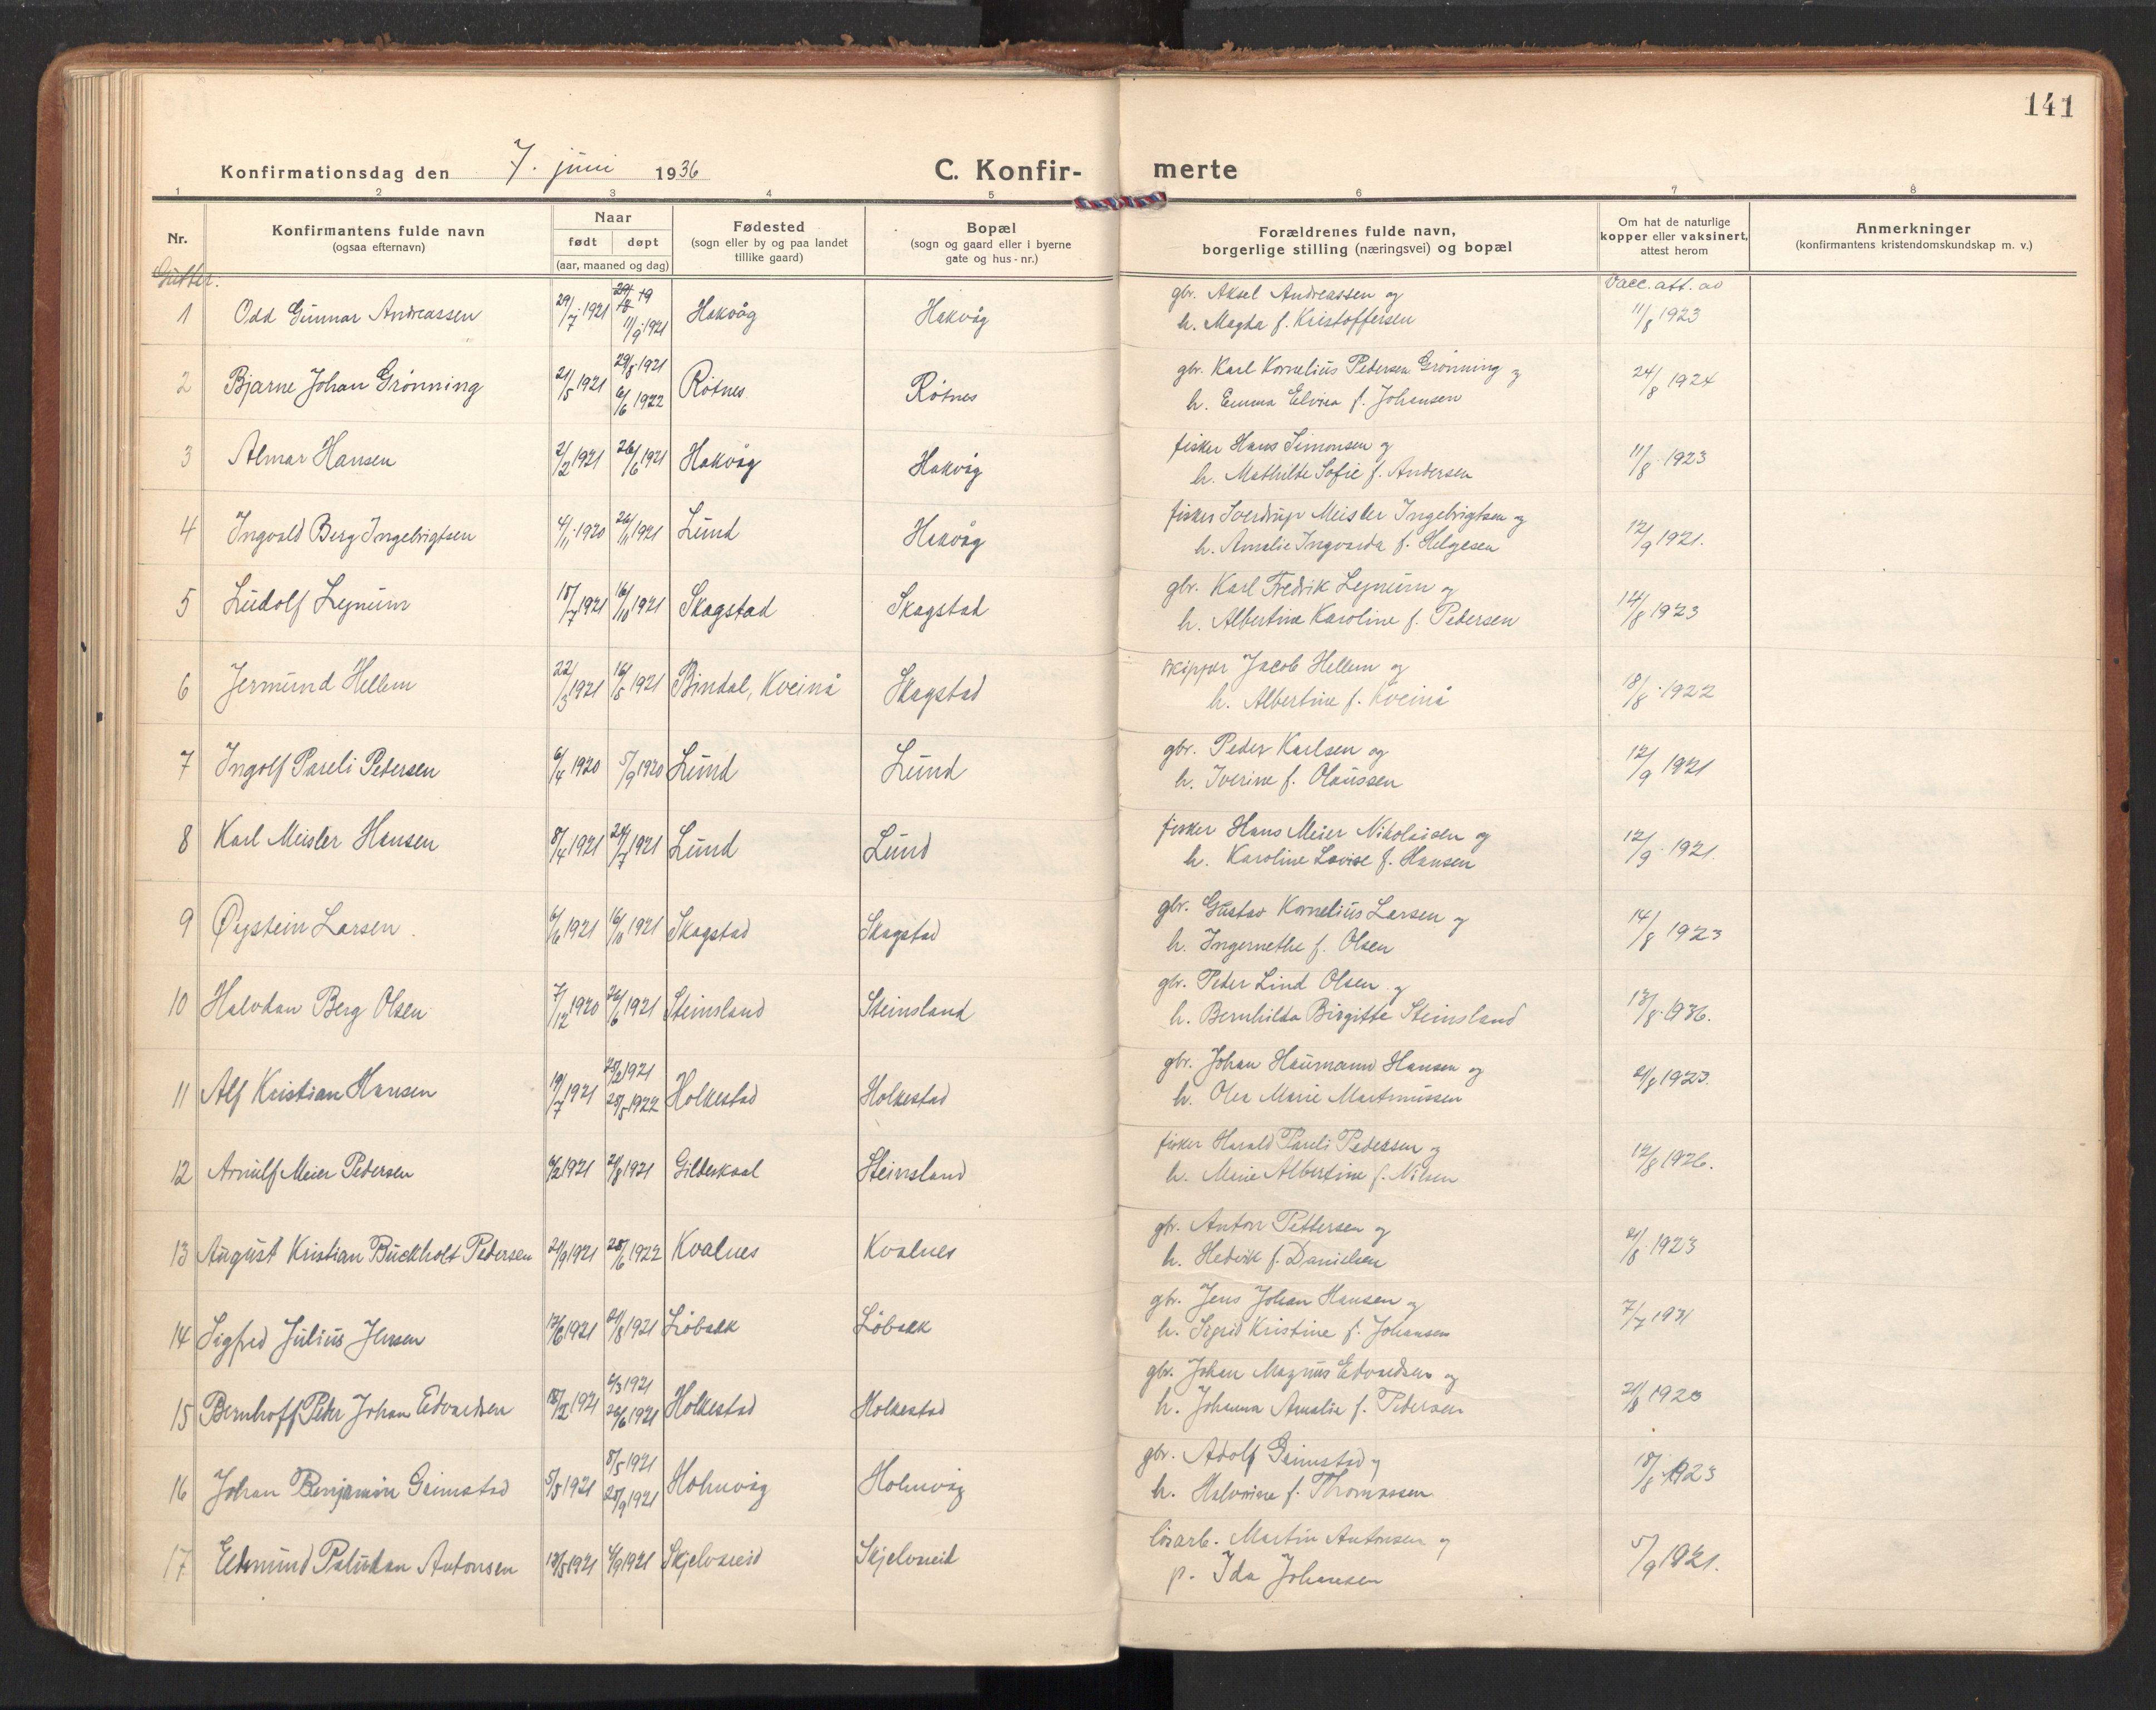 141
Konfirmationsdag den 7. juni 1936
C. Konfir- merte
1 2 3 4 5 6 7 8
Nr.
Konfirmantens fulde navn
(ogsaa efternavn)
Naar
født døpt
(aar, maaned og dag)
Fødested
(sogn eller by og paa landet
tillike gaard)
Bopæl
(sogn og gaard eller i byerne
gate og hus-nr.)
Forældrenes fulde navn,
borgerlige stilling (næringsvei) og bopæl
Om hat de naturlige
kopper eller vaksinert,
attest herom
Anmerkninger
(konfirmantens kristendomskundskap m. v.)
Gutter.
Vacc. att. av
1 Odd Gunnar Andreassen 29/7 1921 11/9 1921 Hakvåg Hakvåg gbr. Aksel Andreassen og
h. Magda f. Kristoffersen 11/8 1923
2 Bjarne Johan Grönning 21/5 1921 29/5 1921 6/6 1922 Rötnes Rötnes gbr. Karl Kornelius Pedersen Grönning og
h. Emma Elvira f. Johansen 24/8 1924
3 Almar Hansen 2/2 1921 26/6 1921 Hakvåg Hakvåg fisker Hans Simonsen og
h. Mathilde Sofie f. Andersen 11/8 1923
4 Ingvald Berg Ingebrigtsen 4/11 1920 26/11 1921 Lund Hakvåg fisker Sverdrup Meisler Ingebrigtsen og
h. Amalie Ingvarda f. Helgesen 12/9 1921.
5 Ludolf Lejnum 15/7 1921 16/10 1921 Skagstad Skagstad gbr. Karl Fredrik Lejnum og
h. Albertine Karoline f. Pedersen 14/8 1923
6 Jermund Hellem 22/3 1921 16/5 1921 Bindal, Kveinå Skagstad skipper Jacob Hellem og
h. Albertine f. Kveinå 18/8 1922
7 Ingolf Pareli Pedersen 6/4 1920 5/9 1920 Lund Lund gbr. Peder Karlsen og
h. Iverine f. Olaussen 12/9 1921
8 Karl Meisler Hansen 8/4 1921 24/7 1921 Lund Lund fisker Hans Meier Nikolaisen og
h. Karoline Lovise f. Hansen 12/9 1921.
9 Øystein Larsen 6/6 1921 16/10 1921 Skagstad Skagstad gbr. Gustav Kornelius Larsen og
h. Ingernethe f. Olsen 14/8 1923
10 Halvdan Berg Olsen 7/12 1920 26/6 1921 Steinsland Steinsland gbr. Peder Lind Olsen og
h. Bernhilda Birgitte Steinsland 13/8 1936.
11 Alf Kristian Hansen 19/7 1921 28/5 1922 Holkestad Holkestad gbr. Johan Haumann Hansen og
h. Olea Marie Martinussen 21/8 1923.
12 Arnulf Meier Pedersen 6/2 1921 21/8 1921 Gildeskaal Steinsland fisker Harald Pareli Pedersen og
h. Marie Albertine f. Nilsen 12/8 1926.
13 August Kristian Buckholt Pedersen 21/9 1921 25/6 1922 Kvalnes Kvalnes gbr. Anton Pettersen og
h. Hedvik f. Danielsen 21/8 1923
14 Sigfred Julius Jensen 12/6 1921 21/8 1921 Löbakk Löbakk gbr. Jens Johan Hansen og
h. Sigrid Kristine f. Johansen 7/7 1931
15 Bernhoff Peder Johan Edvardsen 18/2 1921 6/3 1921 26/6 1921 Holkestad Holkestad gbr. Johan Magnus Edvardsen og
h. Johanna Amalie f. Pedersen 21/8 1923
16 Johan Benjamin Grimstad 5/5 1921 8/5 1921 25/9 1921 Holmvåg Holmvåg gbr. Adolf Grimstad og
h. Halvorine f. Thomassen 18/8 1923
17 Edmund Paludan Antonsen 13/5 1921 4/9 1921 Skjelvareid Skjelvareid lösarb. Martin Antonsen og
p. Ida Johansen 5/9 1921.